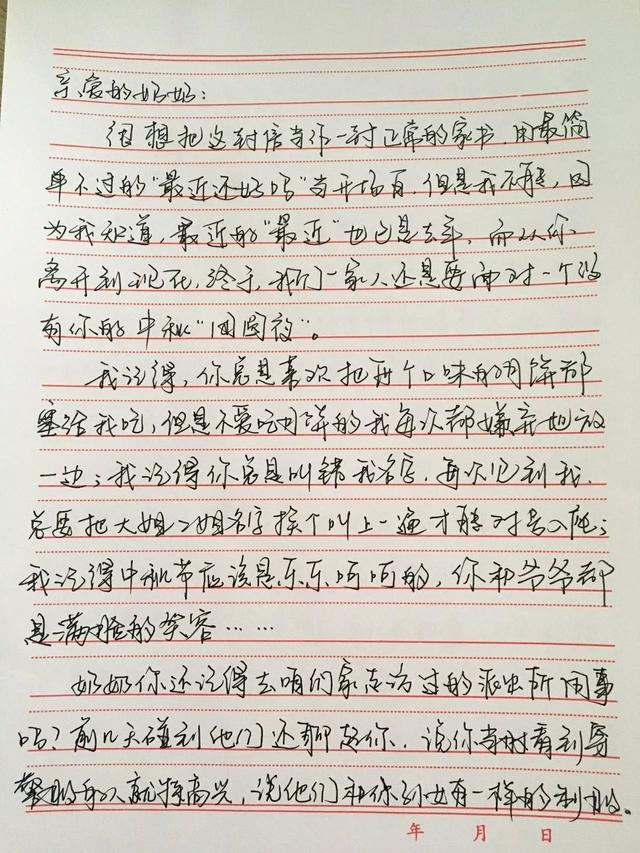 亲爱的奶奶：
很想把这封信当作一封正常的家书，用最简
单不过的“最近还好吗”当开场白，但是我不能，因
为我知道，最近的“最近”也已是去年，而从你
离开到现在，终于，我们一家人还是要面对一个没
有你的中秋“团圆夜”。
我记得，你总是喜欢把两个口味的月饼都
塞给我吃，但是不爱吃月饼的我每次都嫌弃地放
一边；我记得你总是叫错我名字，每次见到我，
总要把大姐二姐名字挨个叫上一遍才能对号入座；
我记得中秋节应该是乐乐呵呵的，你和爷爷都
是满脸的笑容……
奶奶你还记得去咱们家走访过的派出所同事
吗？前几天碰到他们还聊起你，说你当时看到穿
警服的人就特高兴，说他们和你孙女有一样的制服。
年 月 日